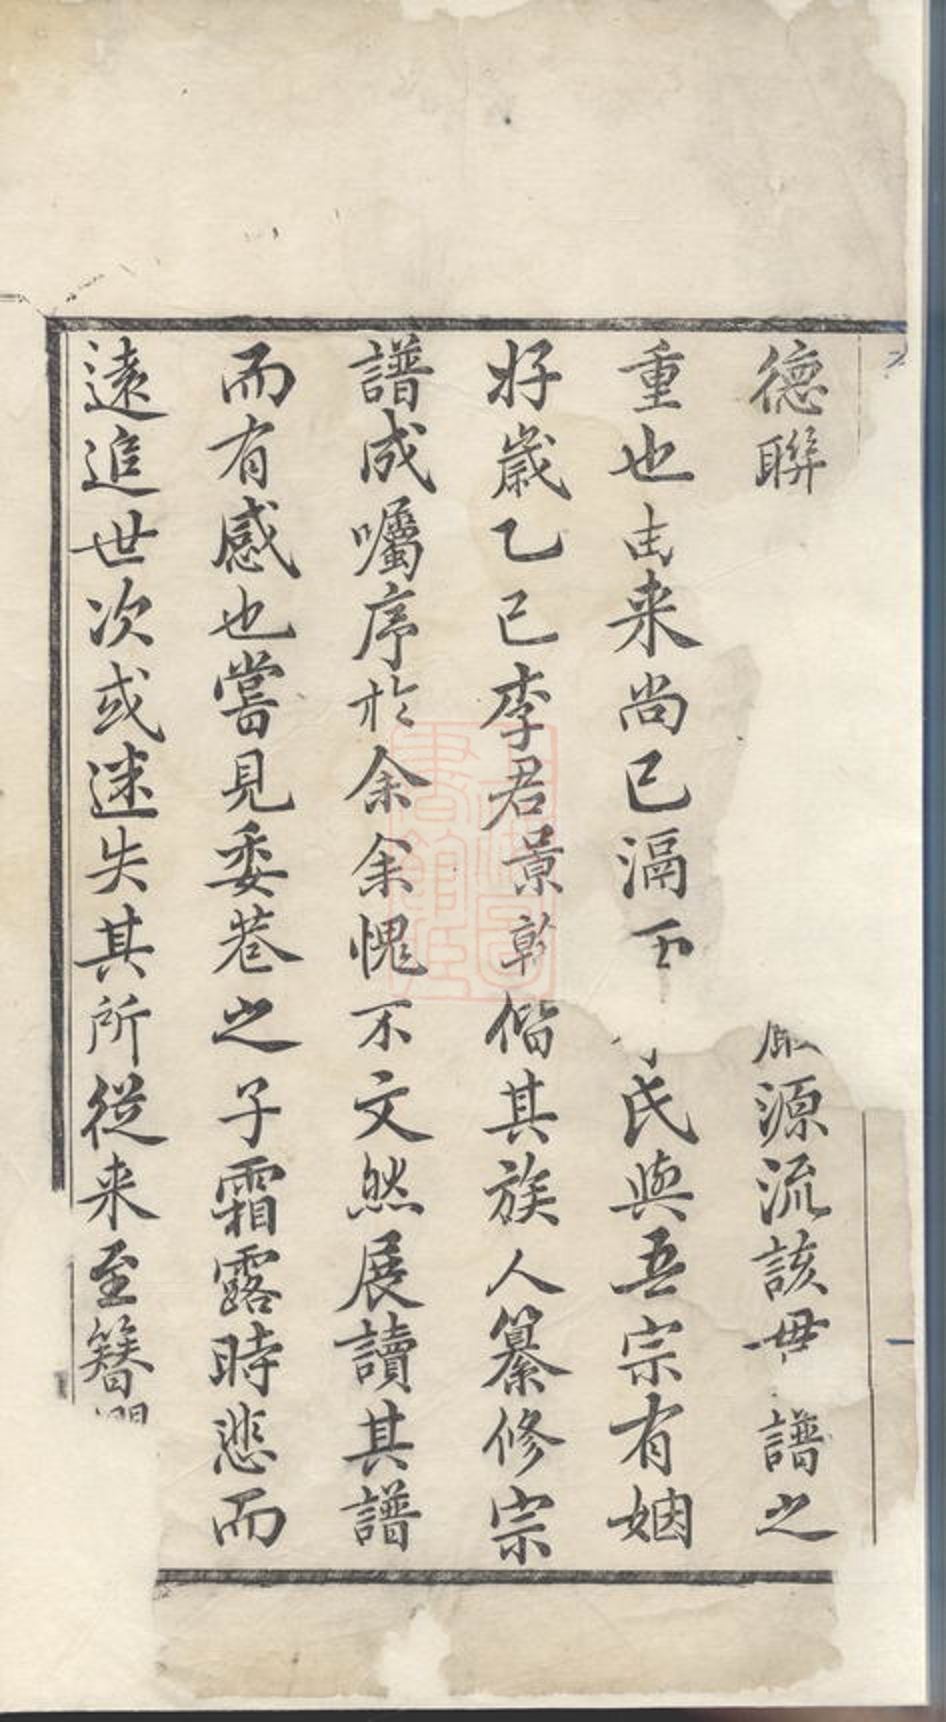 德聯源流該毋譜之
重也由来尚已滆氏與吾宗有姻
好歲乙已李君景偕其族人纂修宗
譜成囑序於余余愧不文然展讀其譜
而有感也嘗見委巷之子霜露時悲而
遠追世次或迷失其所從来至簪